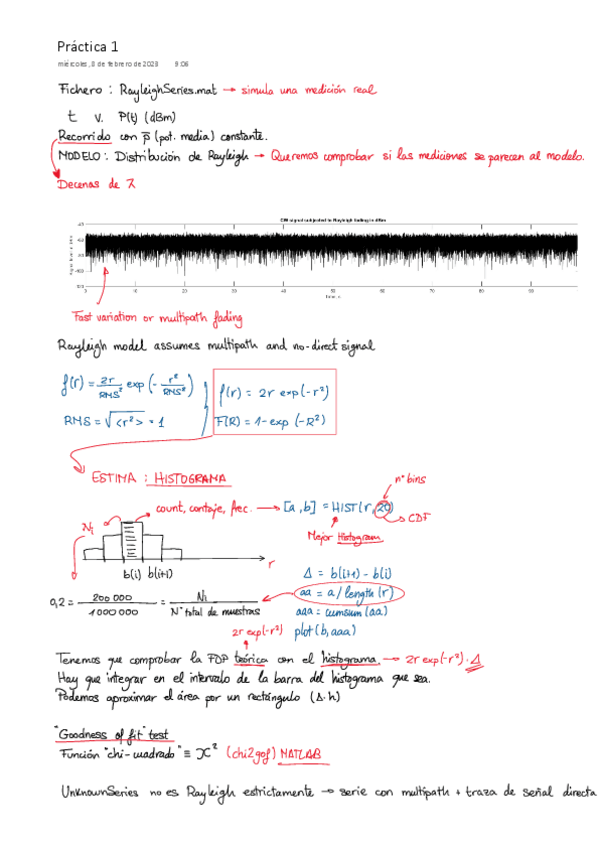 Práctica 1
miércoles, 8 de febrero de 2023 9:06
Fichero : RayleighSeries.mat → simula una medición real
t v. P(t) (dBm)
Recorrido con p̄ (pot. media) constante.
MODELO : Distribución de Rayleigh → Queremos comprobar si las mediciones se parecen al modelo.
Decenas de λ
CW signal subjected to Rayleigh fading in dBm
0 10 20 30 40 50 60 70 80 90
Time, s
Fast variation or multipath fading
Rayleigh model assumes multipath and no-direct signal
f(r) = 2r/RMS² exp(- r²/RMS²)
f(r) = 2r exp(-r²)
RMS = √<r²> = 1
F(R) = 1-exp(-R²)
ESTIMA : HISTOGRAMA
nº bins
count, contaje, frec. → [a,b] = HIST(r,20)
CDF
Ni
Mejor Histogram
r
b(i) b(i+1)
Δ = b(i+1) - b(i)
0,2 = 200 000/1 000 000 = Ni/Nº total de muestras
aa = a/length(r)
aaa = cumsum(aa)
2r exp(-r²)
plot(b,aaa)
Tenemos que comprobar la FDP teórica con el histograma → 2r exp(-r²)·Δ
Hay que integrar en el intervalo de la barra del histograma que sea.
Podemos aproximar el área por un rectángulo (Δ·h)
"Goodness of fit" test
Función "chi-cuadrado" ≡ X² (chi2gof) MATLAB
UnknownSeries no es Rayleigh estrictamente → serie con multipath + traza de señal directa